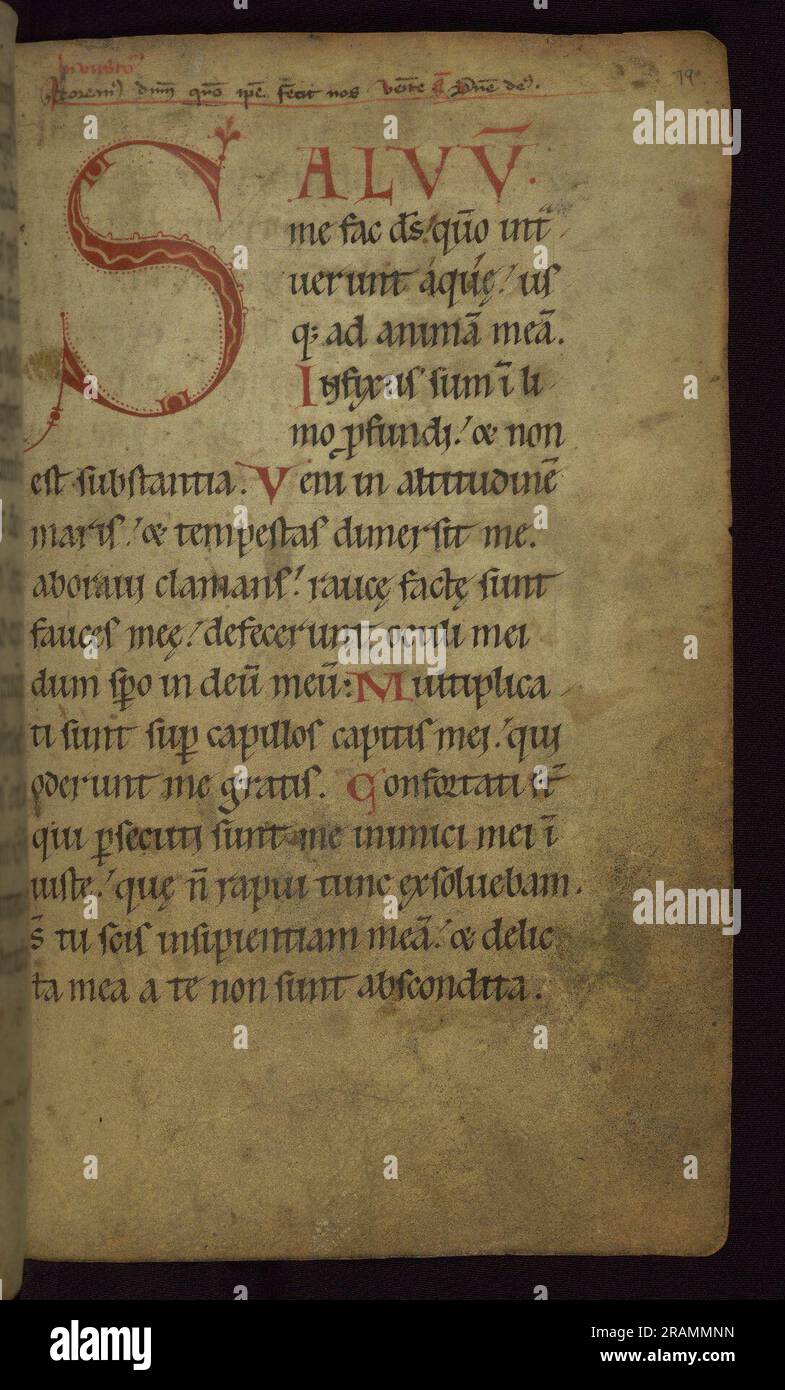 79
Adorem9 dnm̄ quō ip̄e fecit nos Veīte Dn̄e de9.
SALVV̄.
me fac d̄s! qūo int
uerunt aquę! us
q; ad animā meā.
Infixus sum ī li
mo ꝓfundi! & non
est substantia. Veni in altitudinē
maris! & tempestas dimersit me.
aboraui clamans! raucę factę sunt
fauces meę! defecerunt oculi mei
dum sꝑo in deū meū: Multiplica
ti sunt suꝑ capillos capitis mei! qui
oderunt me gratis. Confortati st̄
qui ꝑsecuti sunt me inimici mei ī
iuste! quę n̄ rapui tunc exsoluebam.
s̄ tu scis insipientiam meā! & delic
ta mea a te non sunt abscondita.
alamy
alamy
alamy
alamy
Image ID: 2RAMMNN
www.alamy.com